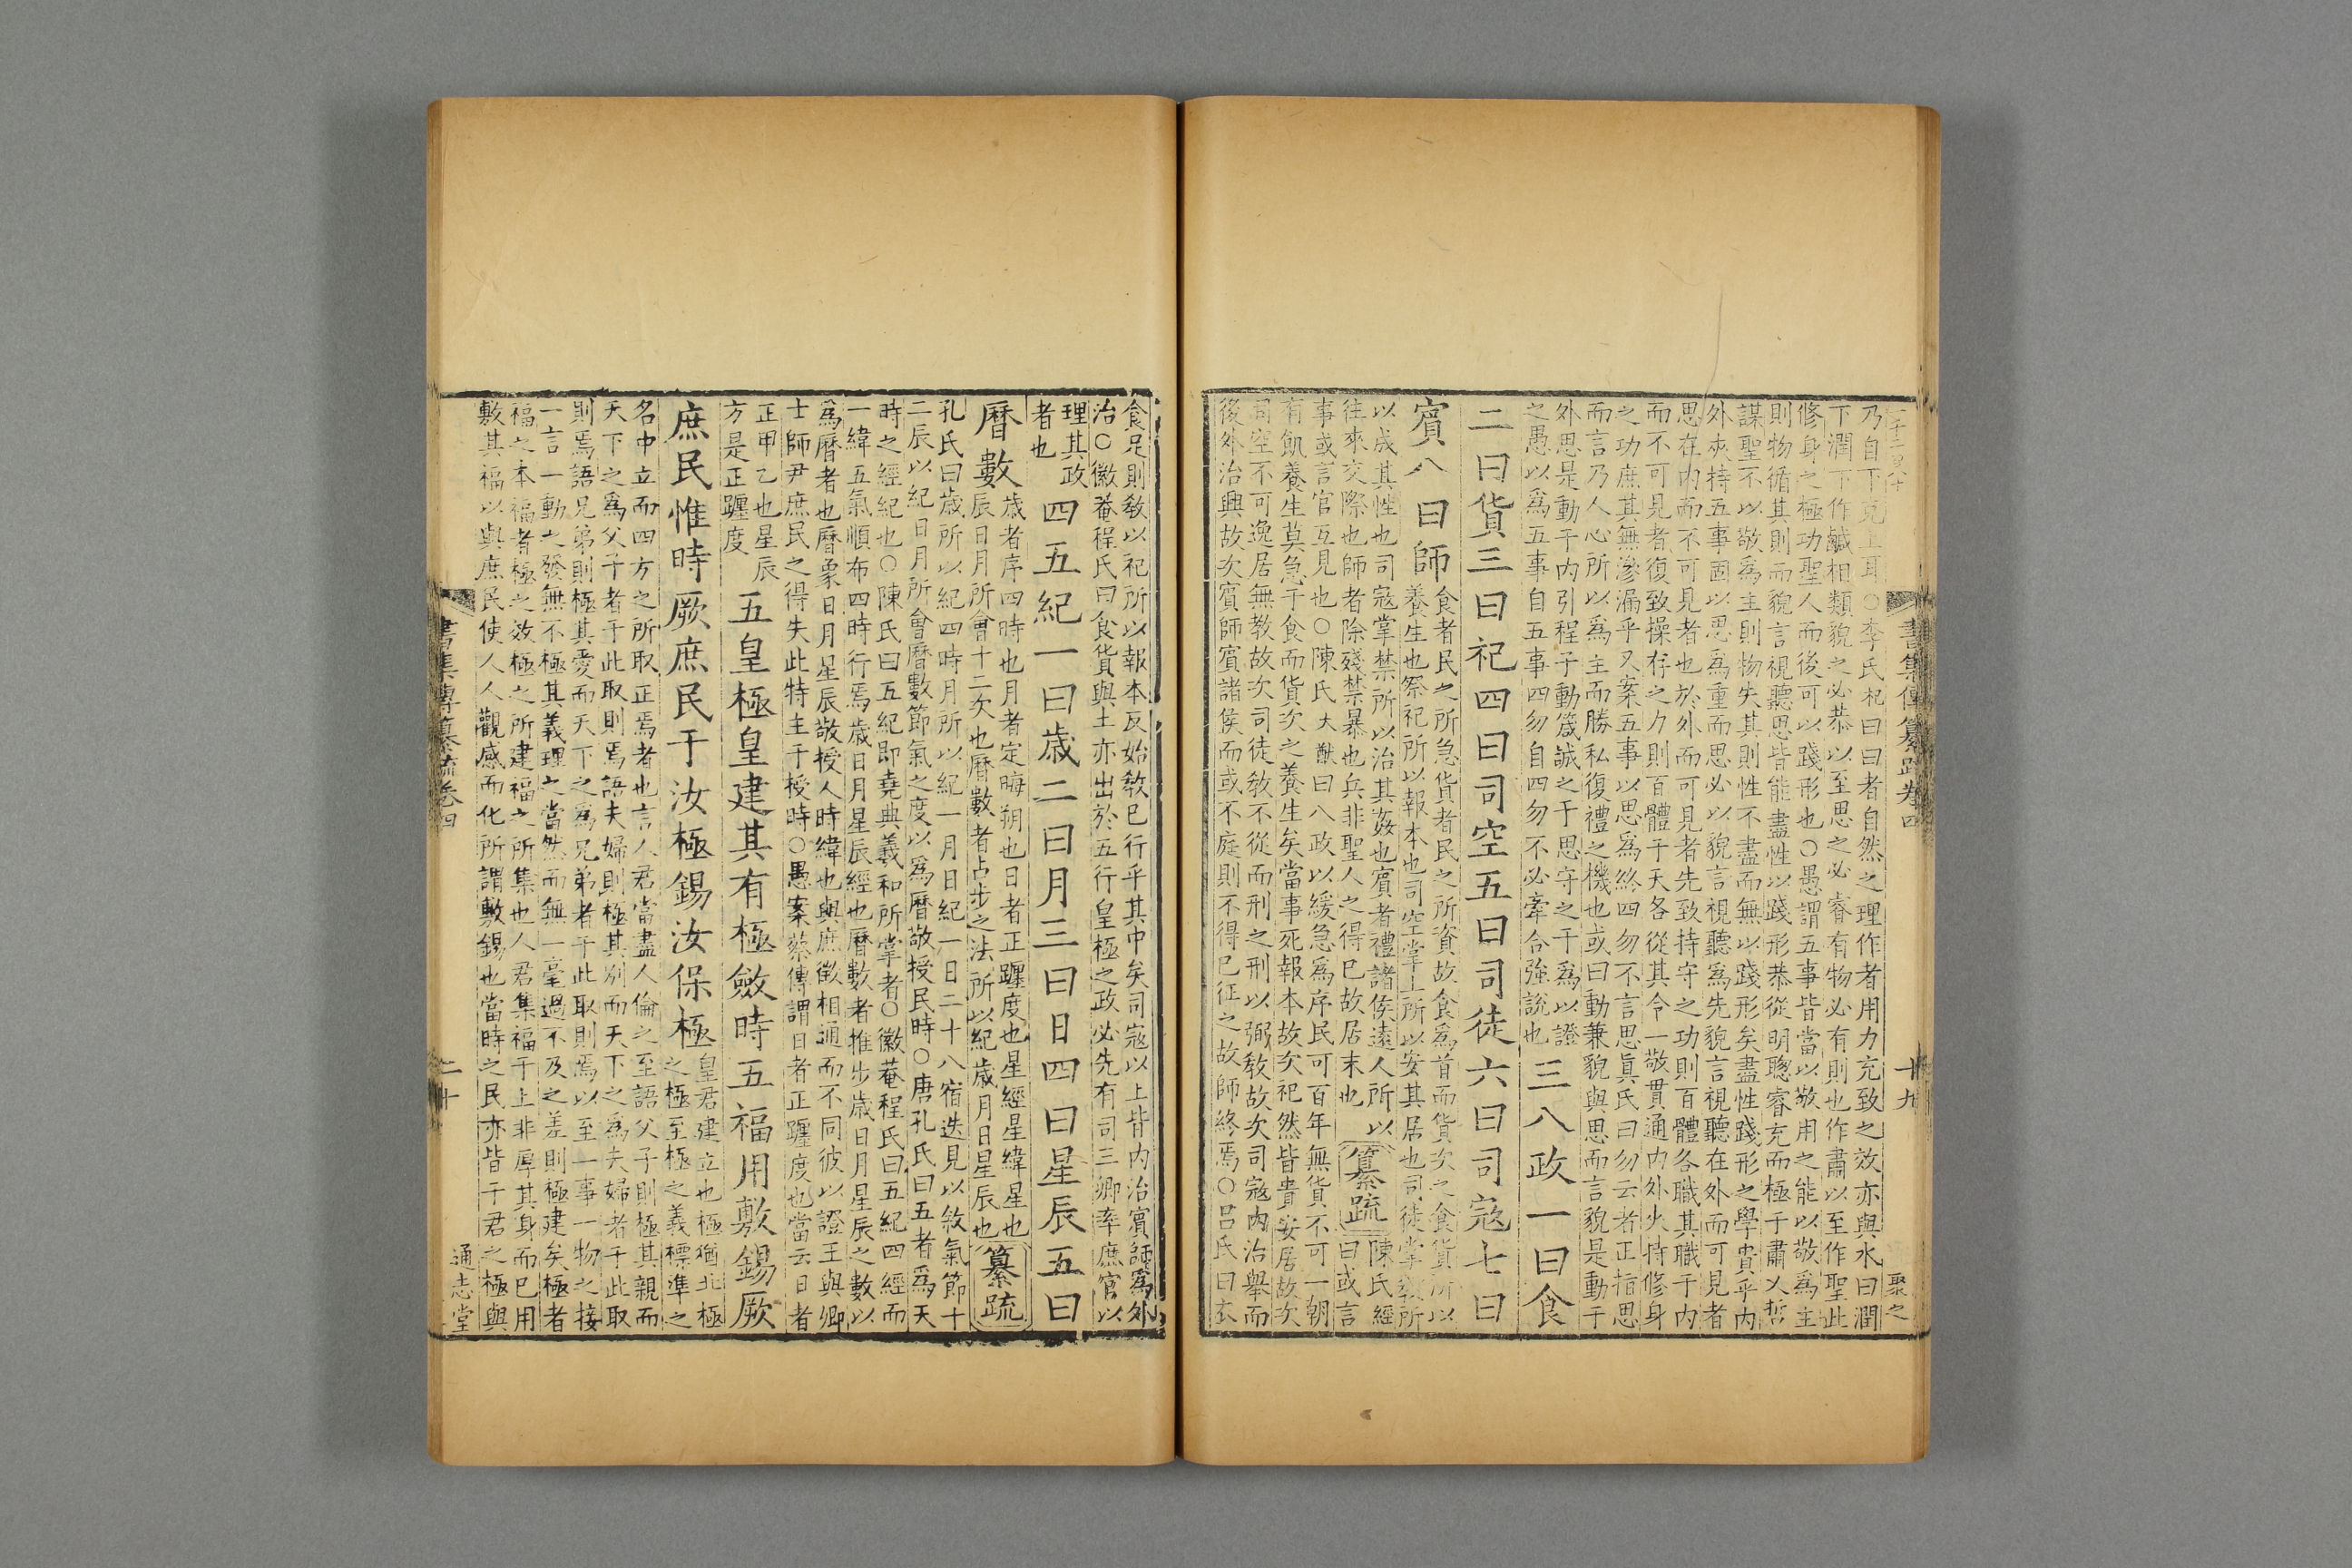 乃自下克上耳○李氏杞曰曰者自然之理作者用力充致之效亦與水曰潤
下潤下作鹹相類貌之必恭以至思之必睿有物必有則也作肅以至作聖此
修身之極功聖人而後可以踐形也○愚謂五事皆當以敬用之能以敬爲主
則物循其則而貌言視聽思皆能盡性以踐形恭從明聰睿充而極于肅乂哲
謀聖不以敬爲主則物失其則性不盡而無以踐形矣盡性踐形之學貴乎內
外夾持五事固以思爲重而思必以貌言視聽爲先貌言視聽在外而可見者
思在內而不可見者也於外而可見者先致持守之功則百體各職其職于內
而不可見者復致操存之力則百體于天各從其令一敬貫通內外火待修身
之功庶其無滲漏乎又案五事以思爲終四勿不言思眞氏曰勿云者正指思
而言乃人心所以爲主而勝私復禮之機也或曰動兼貌與思而言貌是動于
外思是動于內引程子動箴誠之于思守之于爲以證
之愚以爲五事自五事四勿自四勿不必牽合強說也
三八政一曰食
二曰貨三曰祀四曰司空五曰司徒六曰司寇七曰
賓八曰師
食者民之所急貨者民之所資故食爲首而貨次之食貨所以
養生也祭祀所以報本也司空掌土所以安其居也司徒掌敎所
以成其性也司寇掌禁所以治其姦也賓者禮諸侯遠人所以
往來交際也師者除殘禁暴也兵非聖人之得已故居末也
纂疏
陳氏經
曰或言
事或言官互見也○陳氏大猷曰八政以緩急爲序民可百年無貨不可一朝
有飢養生莫急于食而貨次之養生矣當事死報本故次祀然皆貴安居故次
司空不可逸居無教故次司徒敎不從而刑之刑以弼敎故次司寇內治舉而
後外治興故次賓師賓諸侯而或不庭則不得已征之故師終焉○呂氏曰衣
書集傳纂疏卷四
十九
聚之
食足則敎以祀所以報本反始敎已行乎其中矣司寇以上皆內治賓師爲外
治○徽菴程氏曰食貨與土亦出於五行皇極之政必先有司三卿率庶官以
理其政
者也
四五紀一曰歲二曰月三曰日四曰星辰五曰
曆數
歲者序四時也月者定晦朔也日者正躔度也星經星緯星也
辰日月所會十二次也曆數者占步之法所以紀歲月日星辰也
纂疏
孔氏曰歲所以紀四時月所以紀一月日紀一日二十八宿迭見以敘氣節十
二辰以紀日月所會曆數節氣之度以爲曆敬授民時○唐孔氏曰五者爲天
時之經紀也○陳氏曰五紀卽堯典羲和所掌者○徽菴程氏曰五紀四經而
一緯五氣順布四時行焉歲日月星辰經也曆數者推步歲日月星辰之數以
爲曆者也曆象日月星辰敬授人時緯也與庶徵相通而不同彼以證王與卿
士師尹庶民之得失此特主于授時○愚案蔡傳謂日者正躔度也當云日者
正甲乙也星辰
方是正躔度
五皇極皇建其有極斂時五福用敷錫厥
庶民惟時厥庶民于汝極錫汝保極
皇君建立也極猶北極
之極至極之義標準之
名中立而四方之所取正焉者也言人君當盡人倫之至語父子則極其親而
天下之爲父子者于此取則焉語夫婦則極其別而天下之爲夫婦者于此取
則焉語兄弟則極其愛而天下之爲兄弟者于此取則焉以至一事一物之接
一言一動之發無不極其義理之當然而無一毫過不及之差則極建矣極者
福之本福者極之效極之所建福之所集也人君集福于上非厚其身而已用
敷其福以與庶民使人人觀感而化所謂敷錫也當時之民亦皆于君之極與
書集傳纂疏卷四
二十
通志堂